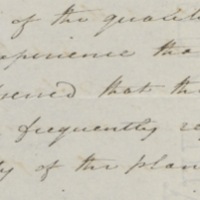 of the qualit
xperience tha
served that the
frequently re
y of the plan